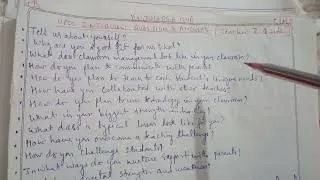 Interview Question & Answer (Teacher)
Tell us about yourself?
Why are you a good fit for our school?
What does classroom management look like in your classroom?
How do you plan to communicate with parents
How do you plan to each student's unique needs?
How have you collaborated with other teacher?
How do you plan to use technology in your classroom?
What is your biggest strength
What does a typical lesson look like for you?
How have you overcome a teaching challenge?
How do you challenge students?
In what ways do you nurture support with parents?
strength and weakness?